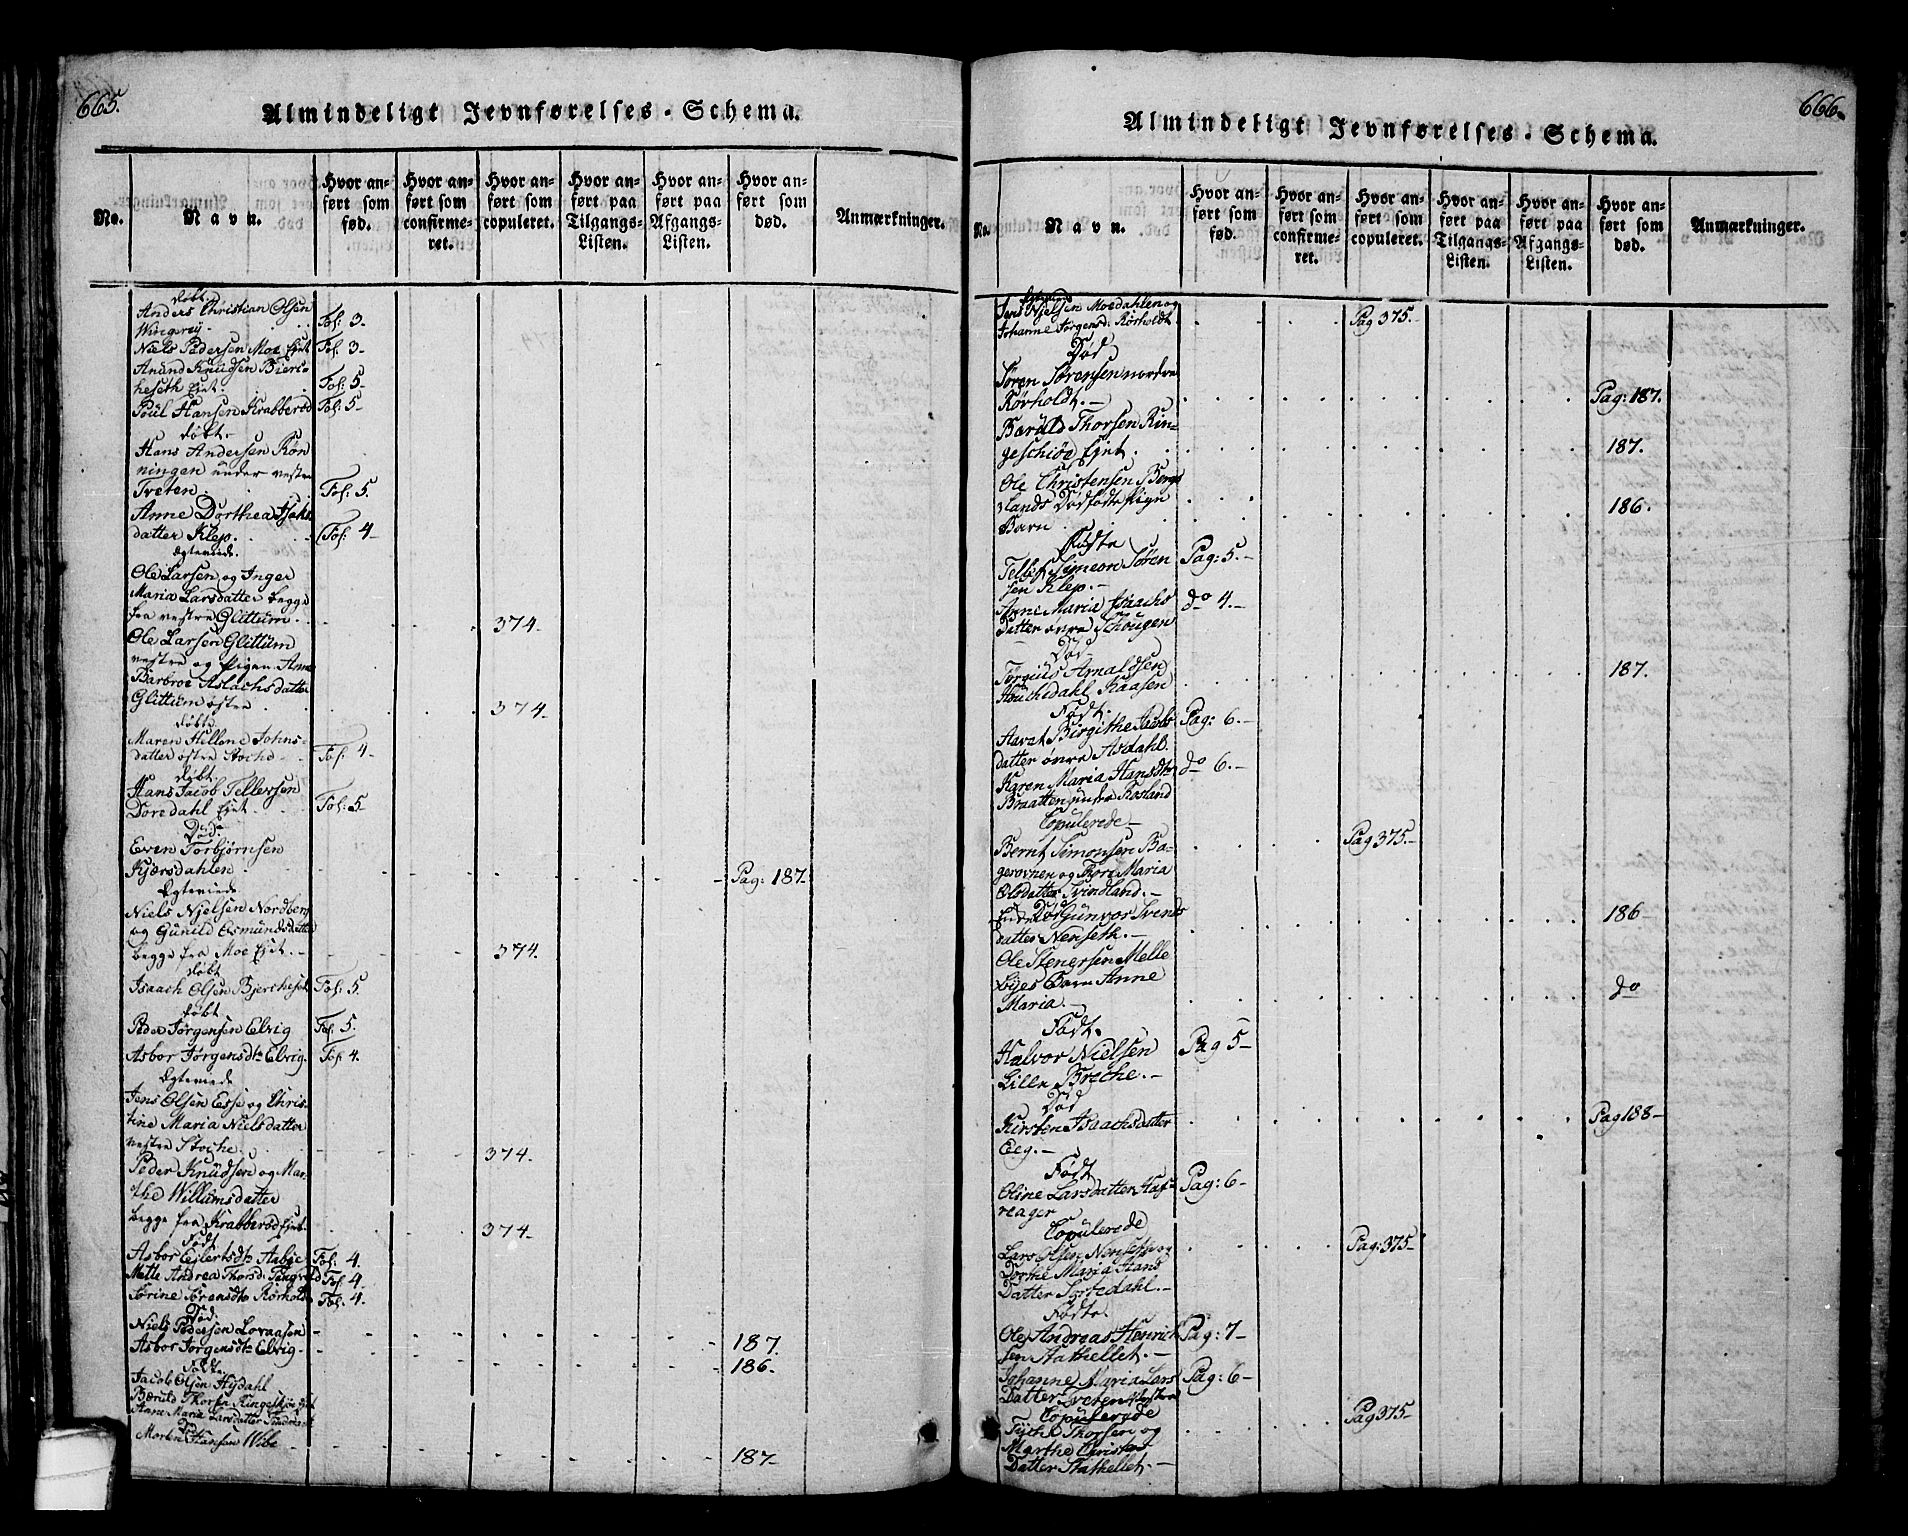 665.
Almindeligt Jevnførelses-Schema.
No.
Navn.
Hvor anført som fød.
Hvor anført som confirmeret.
Hvor anført som copuleret.
Hvor anført paa Tilgangs-Listen.
Hvor anført paa Afgangs-Listen.
Hvor anført som død.
Anmærkninger.
døbt.
Anders Christian Olsen
Wingerøy. Fol: 3-
Niels Pedersen Moe Ejet Fol: 3-
Anund Knudsen Bierc-
heseth Ejet. Fol: 5-
Poul Hansen Krabberød Fol: 5-
døbt.
Hans Andersen Røn-
ningen under vestre
Tveten. Fol: 5.
Anne Dorthea Isachs
datter Klep. Fol: 4-
Egteviede.
Ole Larsen og Inger
Maria Larsdatter begge
fra vestre Glittum. 374.
Ole Larsen Glittum
vestre og Pigen Anne
Barbroe Aslachsdatter
Glittum østre 374.
døbte
Maren Hellene Johns-
datter østre Stoche Fol: 4-
døbt.
Hans Jacob Tellefsen
Doredahl Ejet. Fol: 5
Død.
Even Torbjørnsen
Kjærsdahlen. Pag: 187-
Egteviede
Niels Njelsen Nordberg
og Gunild Osmundsdatter
begge fra Moe Ejet. 374.
døbt
Isaach Olsen Bjercheset Fol: 5.
døbt
Peder Jørgensen Elvig Fol. 5.
Asbor Jørgensdtr Elvig. Fol 4.
Egteviede
Jens Olsen Esse og Chris-
tine Maria Nielsdatter
vestre Stoche. 374.
Peder Knudsen og Mar-
the Willumsdatter
begge fra Krabberød Ejet 374.
Født
Asbor Eilertsdtr Aabye Fol. 4.
Mette Andrea Thorsd: Fol 4.
Sørine Sørensdtr Rørholt Fol: 4.
Død
Niels Pedersen Lovaasen 187.
Asbor Jørgensdtr Elvig. 186.
Født
Jacob Olsen Hydahl
Bærul Thorsen Ringeskiøe Ejet
Anne Maria Larsdatter
Død
Morten Hansen Wibe 187-
666.
Almindeligt Jevnførelses-Schema.
No.
Navn.
Hvor anført som fød.
Hvor anført som confirmeret.
Hvor anført som copuleret.
Hvor anført paa Tilgangs-Listen.
Hvor anført paa Afgangs-Listen.
Hvor anført som død.
Anmærkninger.
Jens Njelsen Moedahlen og
Johanne Jørgensd: Rørholdt. Pag 375.-
Død
Søren Sørensen nordre
Rørholdt.- Pag: 187.
Barul Thorsen Rin-
geschiøe Ejet. 187.
Ole Christensen Bergs
lands Dødfødte Pige
Barn 186.
Født
Tellef Simeon Søren Pag: 5.-
sen Klep.-
Anne Maria Isaachs do 4.-
datter øvre Schougen
Død
Torgius Arnaldsen
Kaasen 187.
Født.
Birgithe Jacobs Pag: 6.-
datter øvre Asdahl.
Karen Maria Hansdtr do 6.-
Braatten under Rosland
Copulerede-
Bernt Simonsen Ba- Pag 375.-
gerovnen og Maria
Olsdatter Svindland.-
Død
Gunvor Svends 186-
datter Nenseth.-
Ole Stenersen Melle
Barn Anne do
Maria.-
Født.
Halvor Nielsen Pag 5-
Lille Breche.-
Død
Kirsten Isaachsdatter Pag 188-
Eeg.-
Født
Oline Larsdatter Haf- Pag: 6-
reager
Copulerede
Lars Olsen Nenseth og Pag: 375-
Dorthe Maria Hans
Datter Sortedahl.-
Fødte
Ole Andreas Henrich Pag: 7-
sen Stathellet.-
Johanne Maria Lars Pag: 6-
Datter Tveten Vestre
Copulerede
Tych Thorsen og Pag 375-
Marthe Christens
Datter Stathellet.-